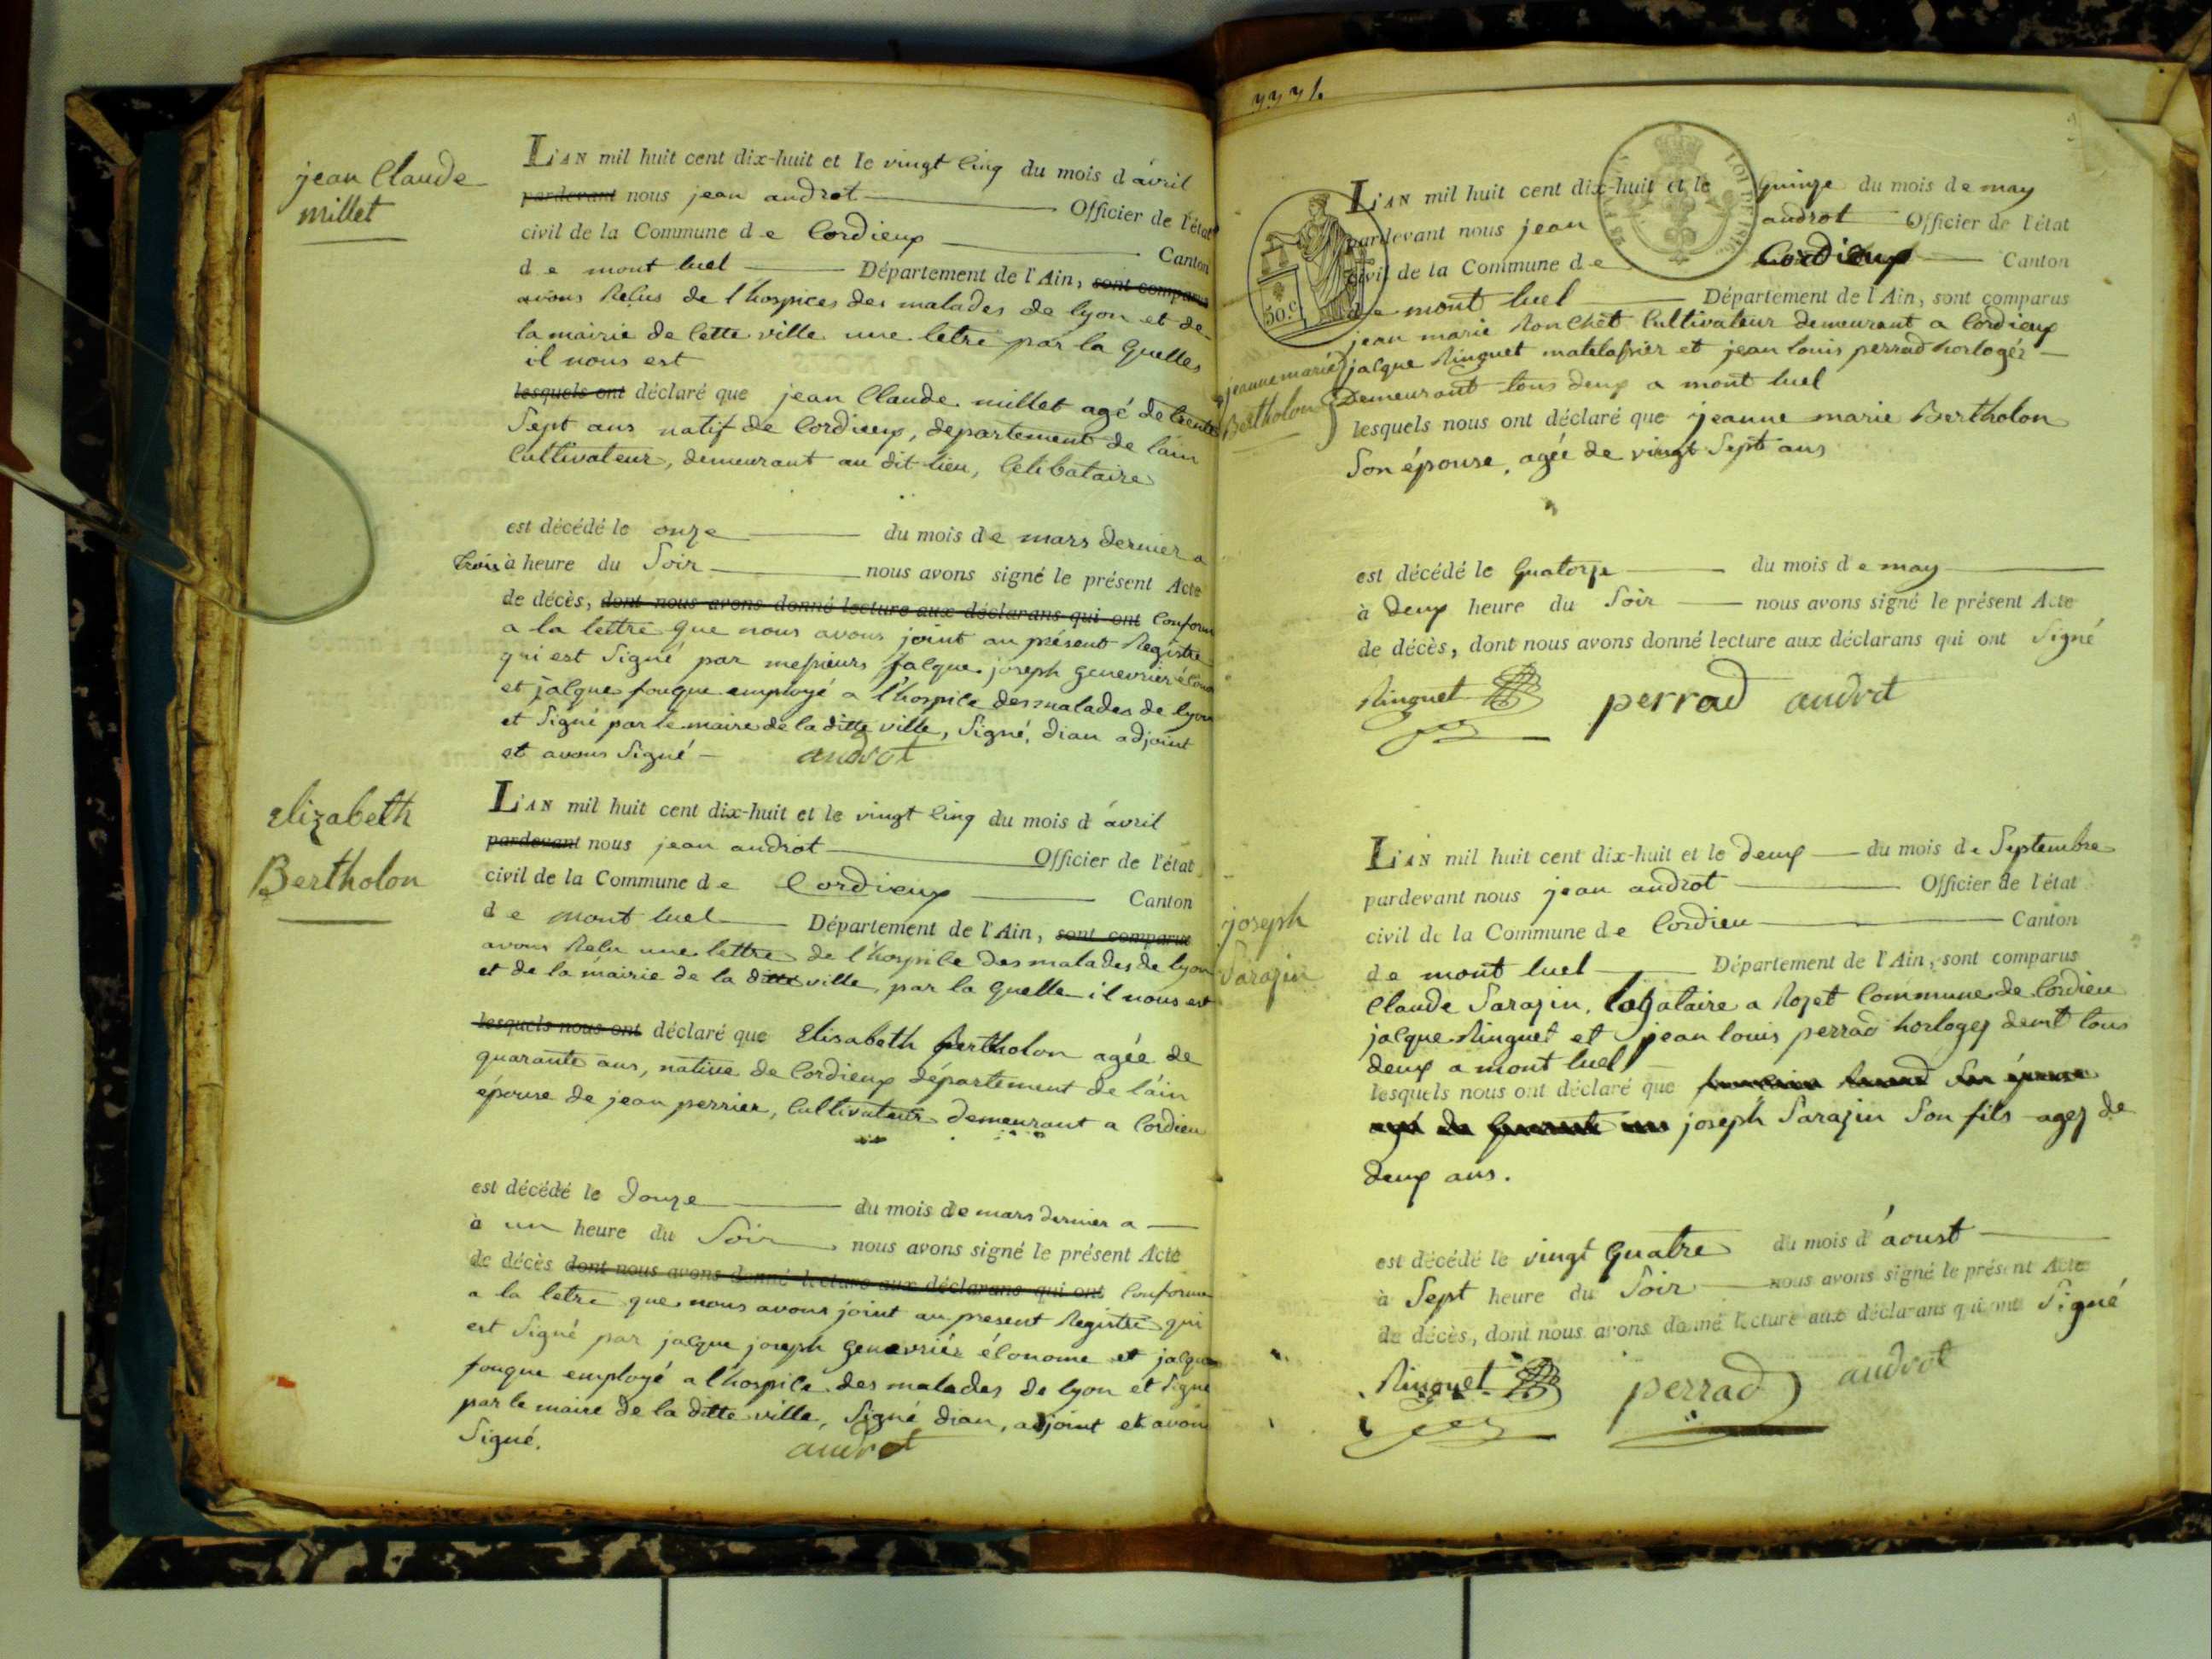 jean Claude
millet
L'AN mil huit cent dix-huit et le vingt cinq du mois d'avril
pardevant nous jean androt Officier de l'état
civil de la Commune de Cordieux Canton
de mont luel Département de l'Ain, sont comparus
avons Recus de l'hospices des malades de lyon et de
la mairie de cette ville une letre par la quelles
il nous est
lesquels ont déclaré que jean Claude millet agé de trente
Sept ans natif de Cordieux, departement de l'ain
Cultivateur, demeurant au dit lieu, Celibataire
est décédé le onze du mois de mars dernier a
trois à heure du Soir nous avons signé le présent Acte
de décès, dont nous avons donné lecture aux déclarans qui ont Conform
a la lettre que nous avons joint au présent Registre
qui est Signé par messieurs jacque joseph genevrier
et jacque fouque employé a l'hospice des malades de lyon
et Signé par le maire de la ditte ville, Signé, dian adjoint
et avons Signé - androt
Elizabeth
Bertholon
L'AN mil huit cent dix-huit et le vingt cinq du mois d'avril
pardevant nous jean androt Officier de l'état
civil de la Commune de Cordieux Canton
de mont luel Département de l'Ain, sont comparus
avons Recu une lettre de l'hospice des malades de lyon
et de la mairie de la ditte ville par la quelle il nous est
lesquels nous ont déclaré que Elisabeth Bertholon agée de
quarante ans, native de Cordieux département de l'ain
épouse de jean perrier, Cultivateur demeurant a Cordieu
est décédé le douze du mois de mars dernier a
à un heure du Soir nous avons signé le présent Acte
de décès dont nous avons donné lecture aux déclarans qui ont Conforme
a la letre que nous avons joint au present Registre qui
est Signé par jacque joseph genevriér économe et jacque
fouque employé a l'hospice des malades de lyon et Signé
par le maire de la ditte ville, Signé dian, adjoint et avons
Signé. androt
L'AN mil huit cent dix-huit et le quinze du mois de may
pardevant nous jean androt Officier de l'état
civil de la Commune de Cordieux Canton
de mont luel Département de l'Ain, sont comparus
jean marie Ronchet Cultivateur demeurant a Cordieux
jacque Ringuet matelassier et jean louis perrad horloger
Demeurant tous deux a mont luel
jeanne marie
Bertholon
lesquels nous ont déclaré que jeanne marie Bertholon
Son épouse, agée de vingt Sept ans
est décédé le quatorze du mois de may
à deux heure du Soir nous avons signé le présent Acte
de décès, dont nous avons donné lecture aux déclarans qui ont Signé
Ringuet perrad androt
50.c
joseph
Sarazin
L'AN mil huit cent dix-huit et le deux du mois de Septembre
pardevant nous jean androt Officier de l'état
civil de la Commune de Cordieu Canton
de mont luel Département de l'Ain, sont comparus
Claude Sarazin, a Rozet Commune de Cordieu
jacque Ringuet et jean louis perrad horloger demt tous
deux a mont luel
lesquels nous ont déclaré que
joseph Sarazin Son fils agez de
deux ans.
est décédé le vingt quatre du mois d'aoust
à Sept heure du Soir nous avons signé le présent Acte
de décès, dont nous avons donné lecture aux déclarans qui ont Signé
Ringuet perrad androt